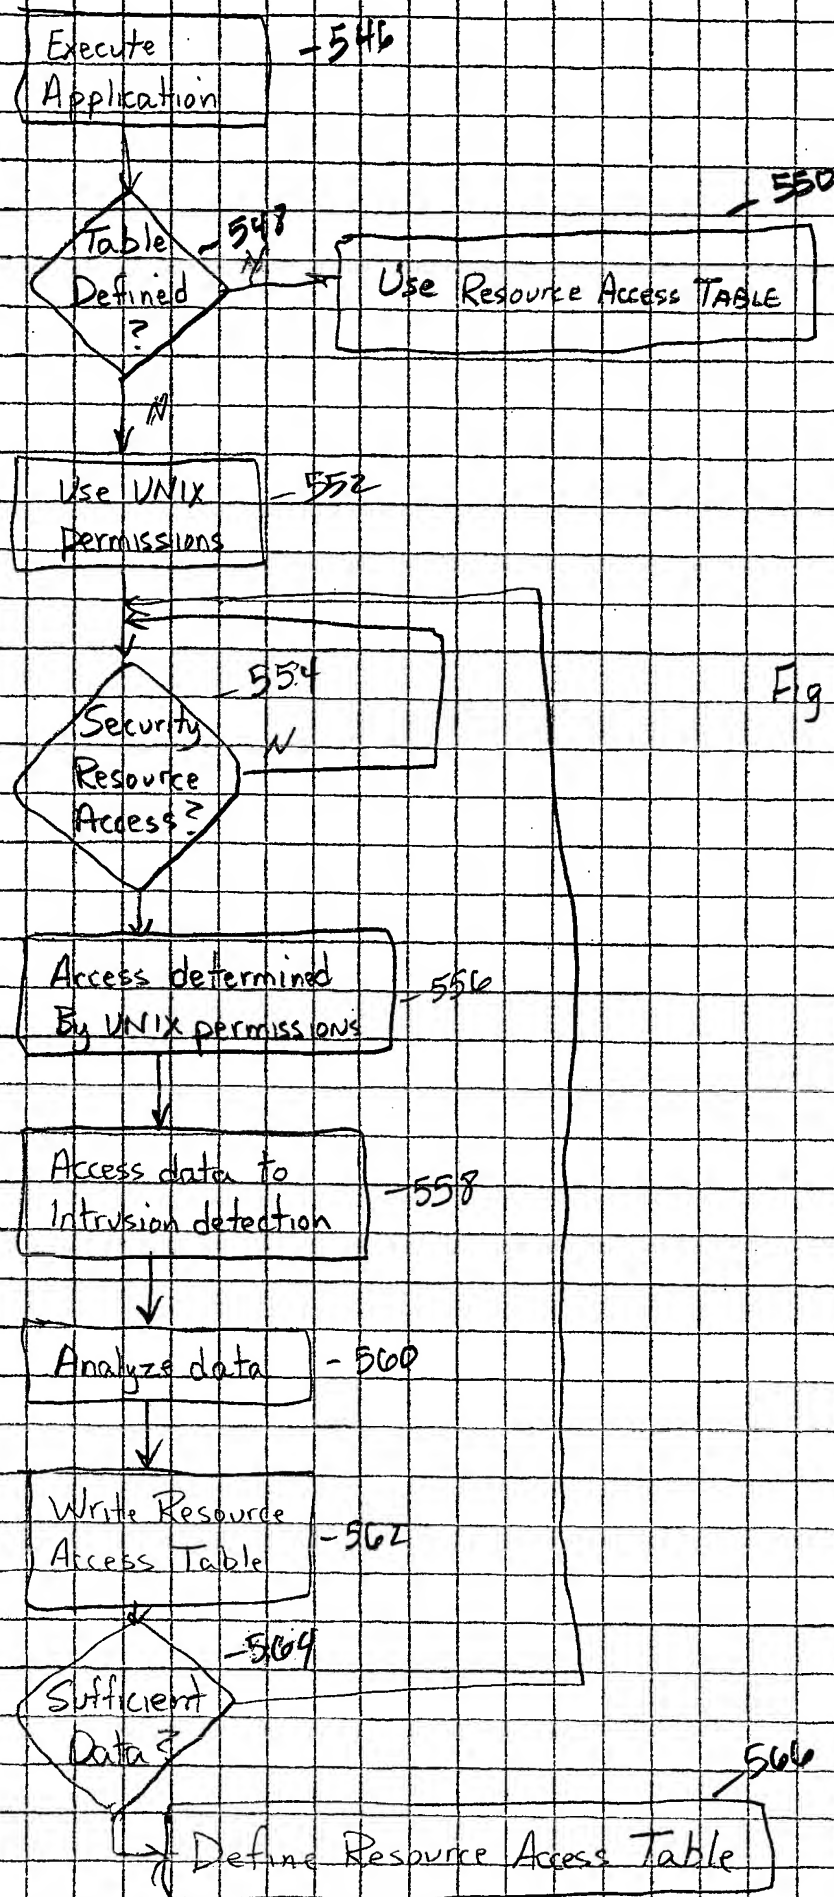 Execute
Application
-546
Table
Defined
?
-548
N
-550
Use Resource Access TABLE
N
Use UNIX
permissions
-552
Security
Resource
Access?
-554
N
Fig
Access determined
By UNIX permissions
-556
Access data to
Intrusion detection
-558
Analyze data
-560
Write Resource
Access Table
-562
Sufficient
Data?
-564
566
Define Resource Access Table